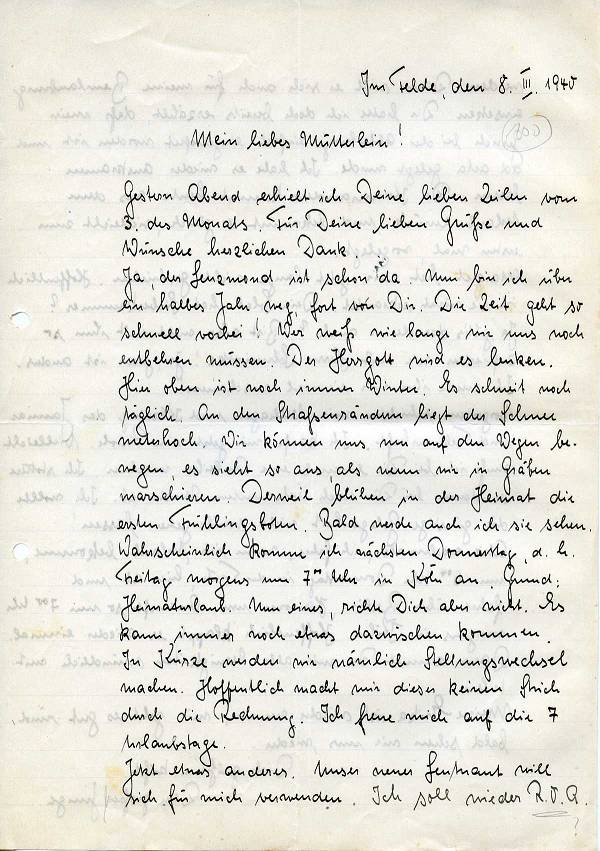 Im Felde, den 8. III. 1940
100
Mein liebes Mütterlein!
Gestern Abend erhielt ich Deine lieben Zeilen vom
3. des Monats. Für Deine lieben Grüße und
Wünsche herzlichen Dank.
Ja, der Lenzmond ist schon da. Nun bin ich über
ein halbes Jahr weg, fort von Dir. Die Zeit geht so
schnell vorbei! Wer weiß wie lange wir uns noch
entbehren müssen. Der Herrgott wird es lenken.
Hier oben ist noch immer Winter. Es schneit noch
täglich. An den Straßenrändern liegt der Schnee
meterhoch. Wir können uns nur auf den Wegen be-
wegen, es sieht so aus, als wenn wir in Gräben
marschieren. Derweil blühen in der Heimat die
ersten Frühlingsboten. Bald werde auch ich sie sehen.
Wahrscheinlich komme ich nächsten Donnerstag, d. h.
Freitag morgens um 7 Uhr in Köln an. Grund:
Heimaturlaub. Nun eines, richte Dich aber nicht. Es
kann immer noch etwas dazwischen kommen.
In Kürze werden wir nämlich Stellungswechsel
machen. Hoffentlich macht mir dieser keinen Strich
durch die Rechnung. Ich freue mich auf die 7
Urlaubstage.
Jetzt etwas anderes. Unser neuer Leutnant will
sich für mich verwenden. Ich soll wieder R.O.A.